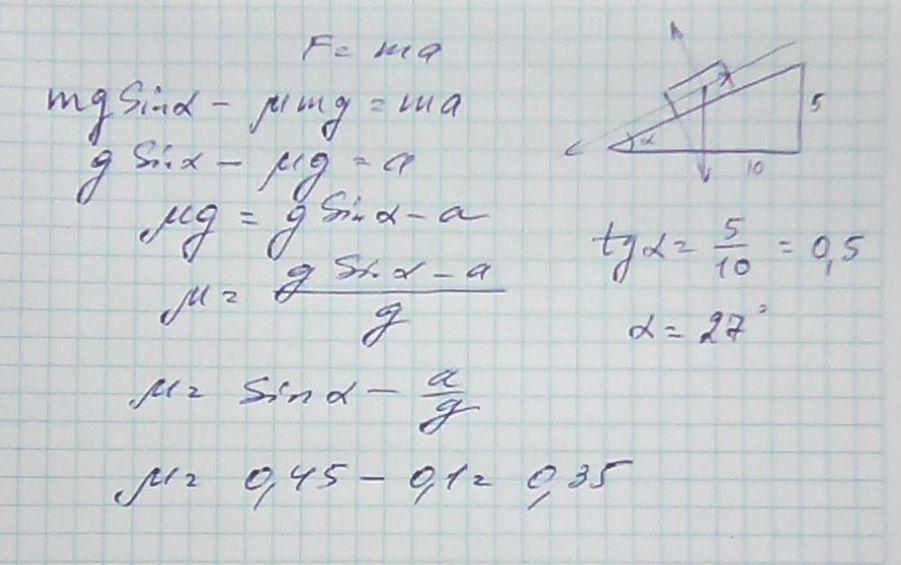 F = ma
mg sin α - μmg = ma
g sin α - μg = a
μg = g sin α - a
μ = \frac{g sin α - a}{g}
μ = sin α - \frac{a}{g}
μ = 0,45 - 0,1 = 0,35
5
α
10
tg α = \frac{5}{10} = 0,5
α = 27°